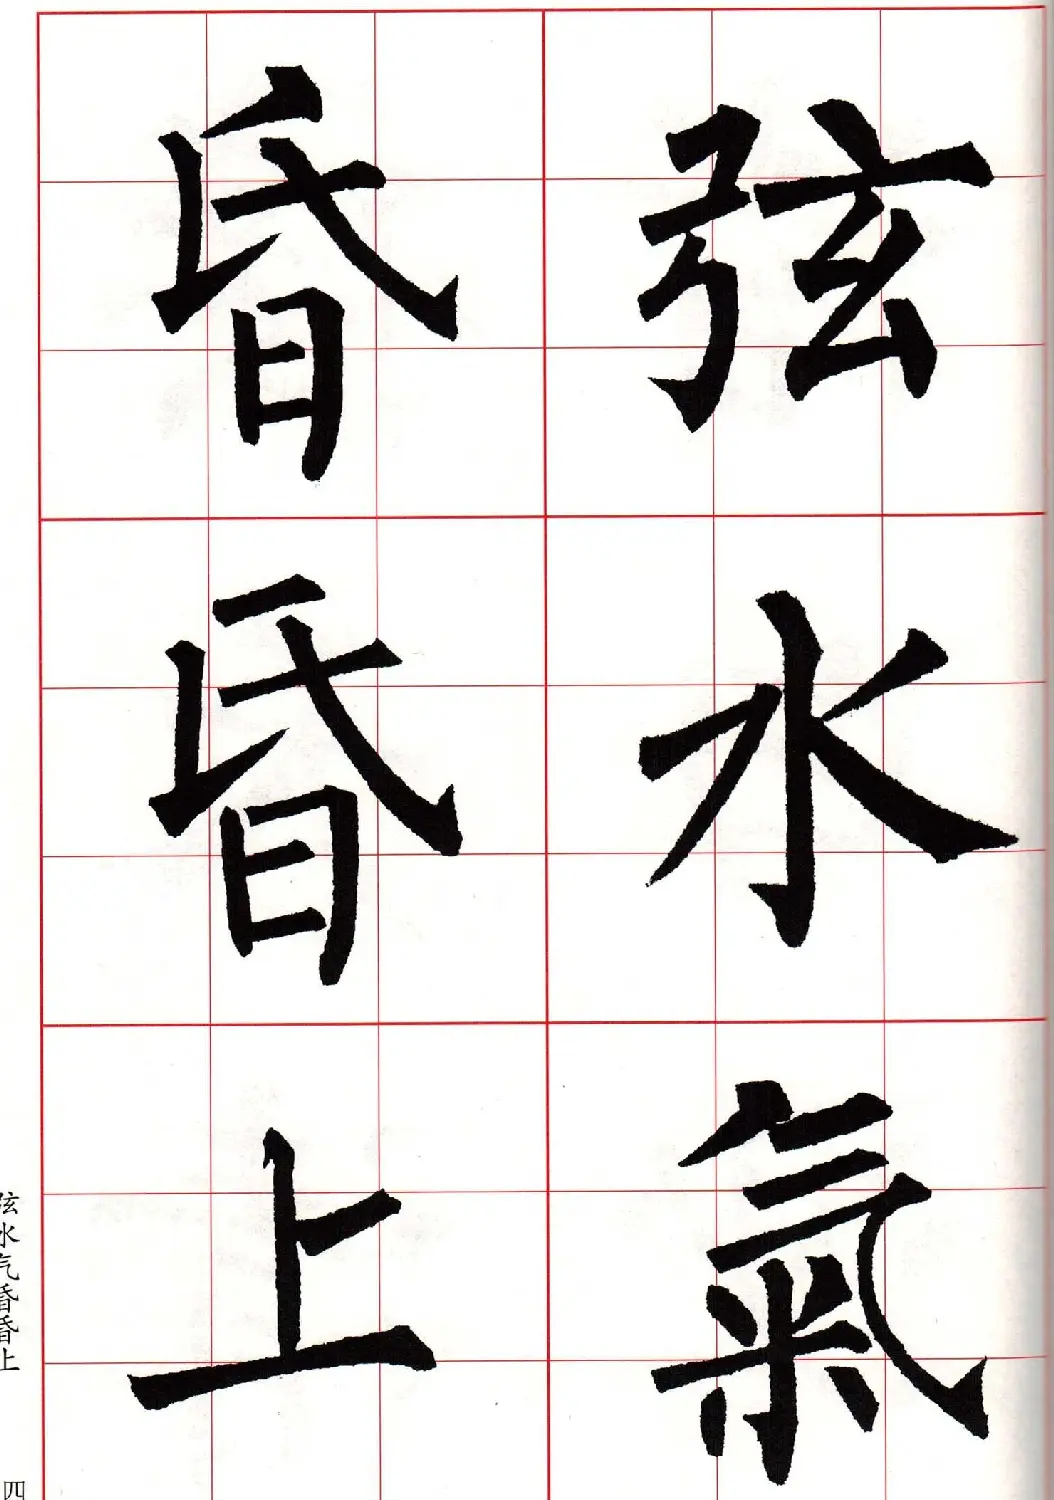 弦水氣
昏昏上
弦水气昏昏上
四